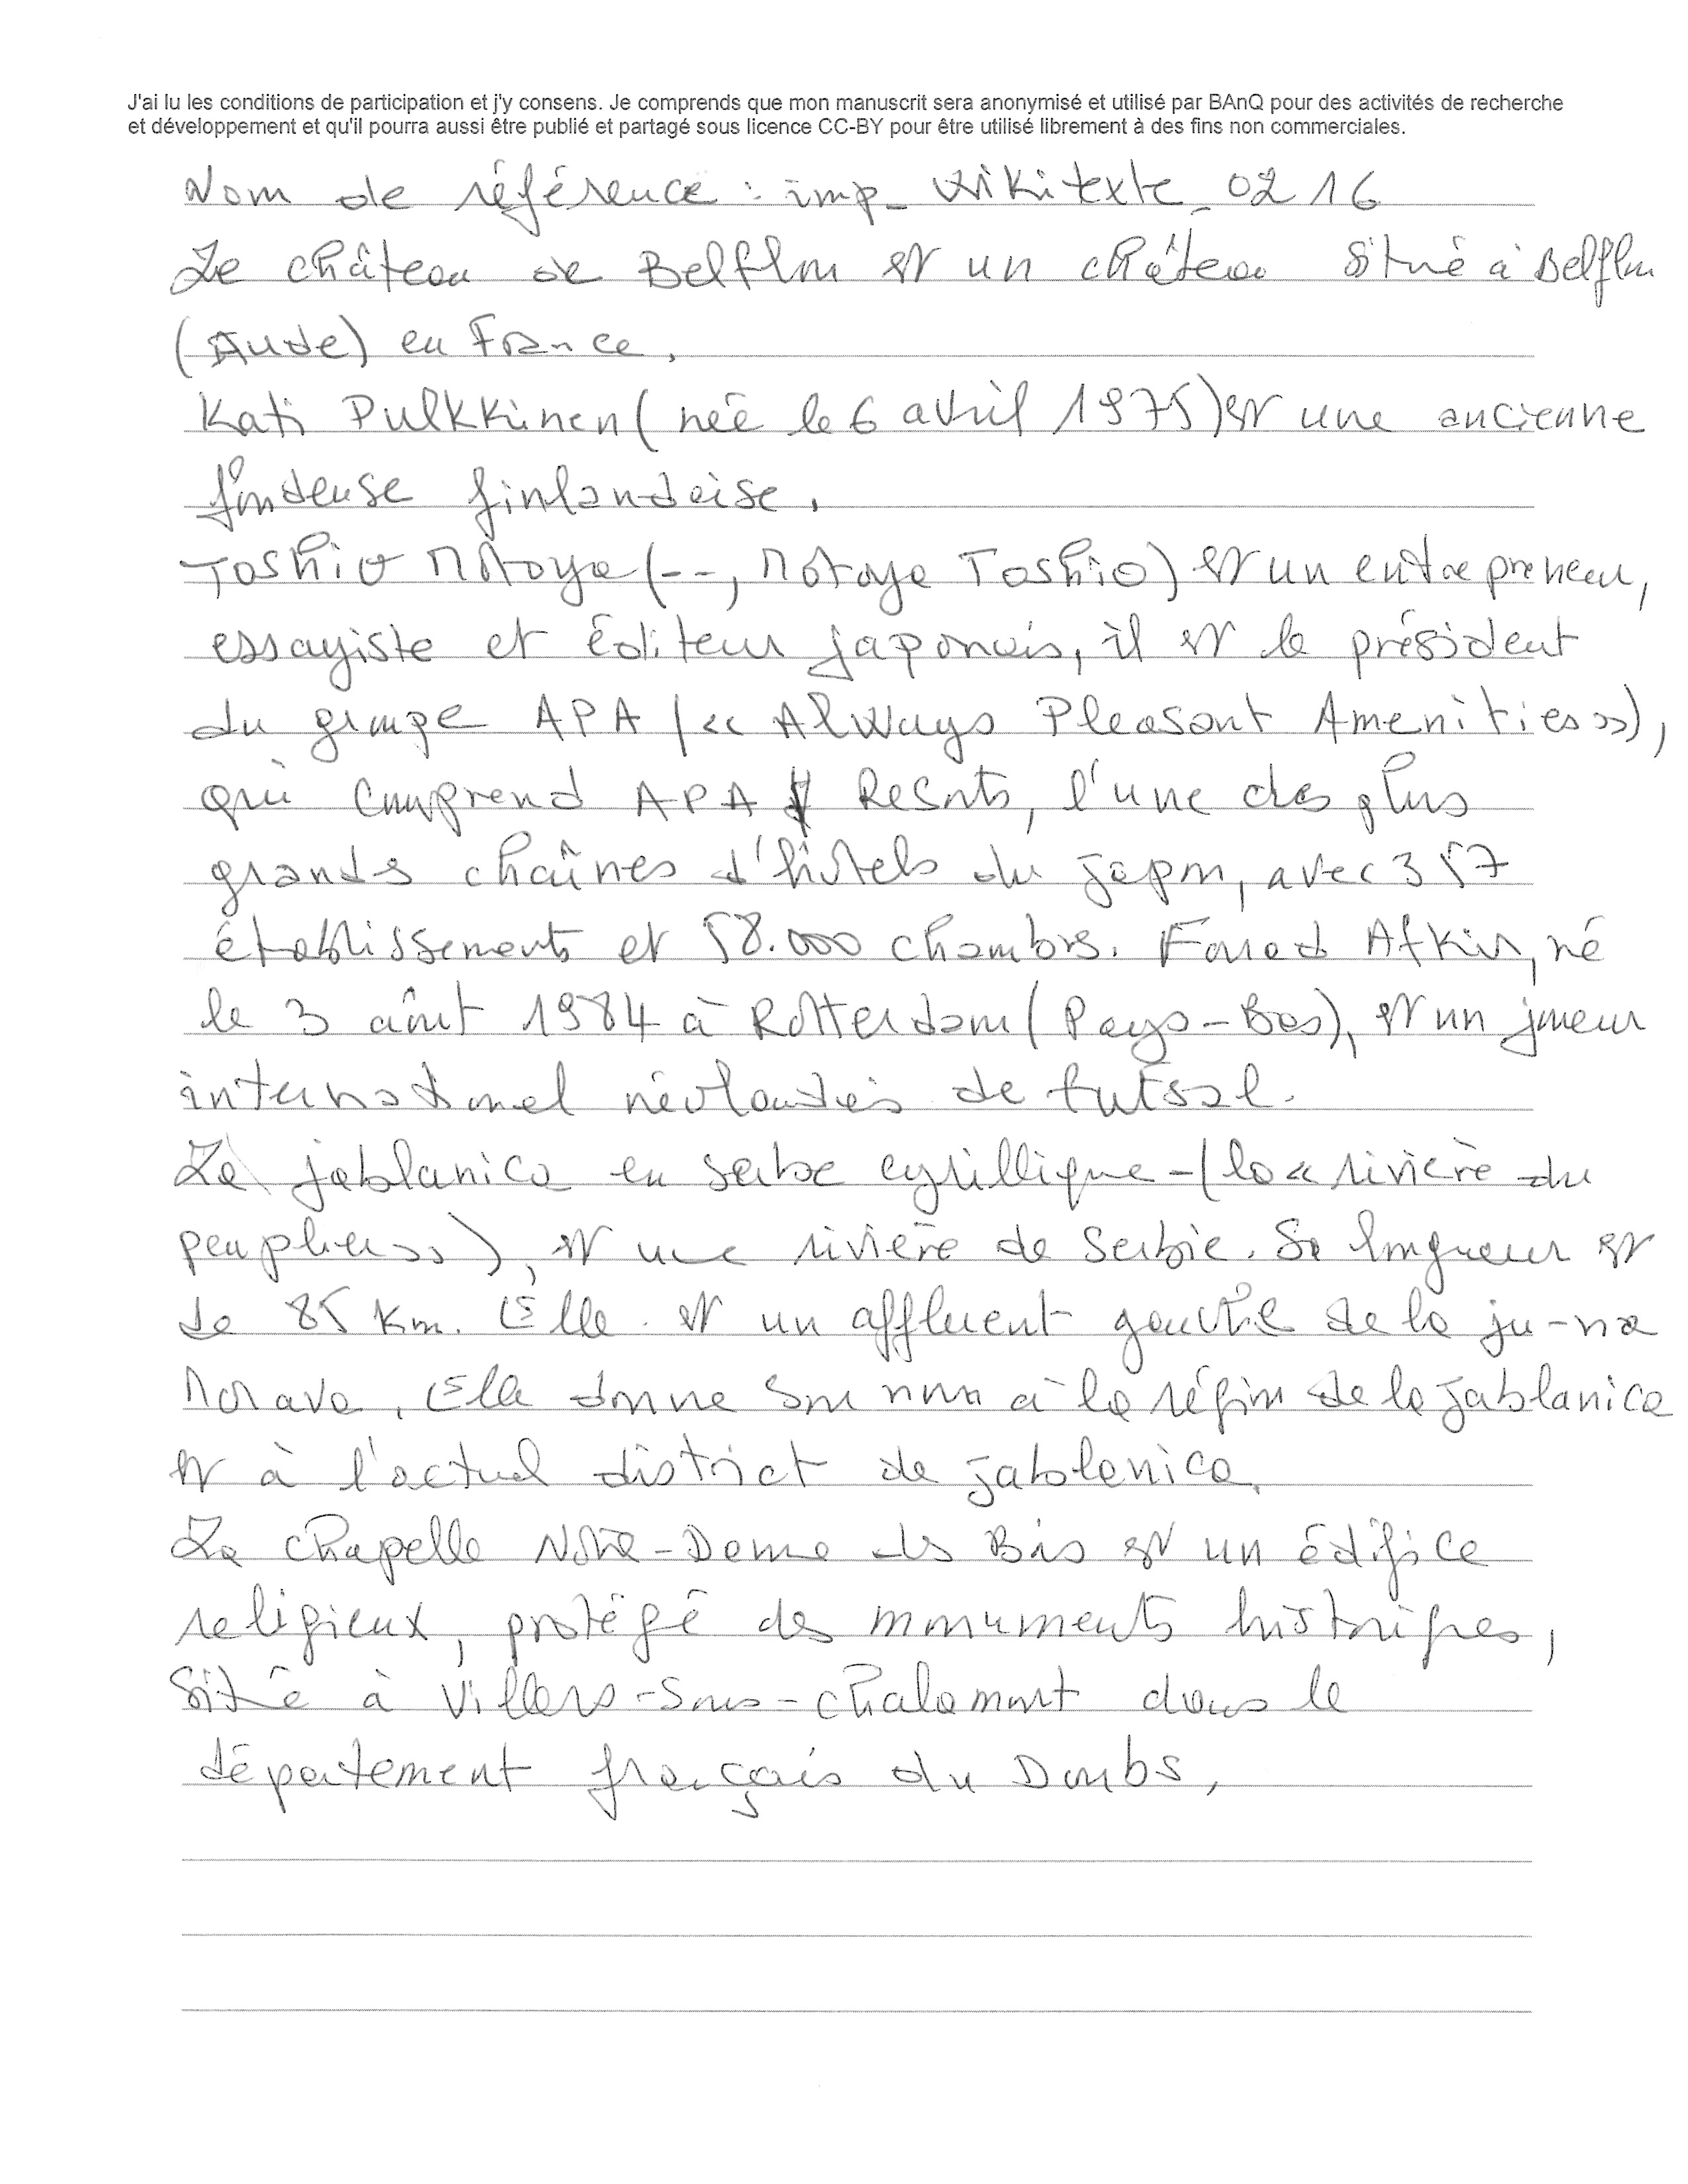 J'ai lu les conditions de participation et j'y consens. Je comprends que mon manuscrit sera anonymisé et utilisé par BAnQ pour des activités de recherche
et développement et qu'il pourra aussi être publié et partagé sous licence CC-BY pour être utilisé librement à des fins non commerciales.
Nom de référence : imp_wikitexte_0216
Le château de Belflou est un château situé à Belflou
(Aude) en France.
Kati Pulkkinen (née le 6 avril 1975) est une ancienne
fondeuse finlandaise.
Toshio Motoya (--, Motoya Toshio) est un entrepreneur,
essayiste et éditeur japonais, il est le président
du groupe APA (« Always Pleasant Amenities »),
qui comprend APA Resorts, l'une des plus
grands chaînes d'hôtels du Japon, avec 357
établissements et 58.000 chambres. Fouad Afkir, né
le 3 août 1984 à Rotterdam (Pays-Bas), est un joueur
international néerlandais de futsal.
La Jablanica en serbe cyrillique - (la « rivière du
peuplier »), est une rivière de Serbie. Sa longueur est
de 85 km. Elle est un affluent gauche de la Ju-na
Morava. Elle donne son nom à la région de la Jablanica
et à l'actuel district de Jablanica.
La chapelle Notre-Dame des Bois est un édifice
religieux, protégé des monuments historiques,
sité à Villers-sous-Chalamont dans le
département français du Doubs,